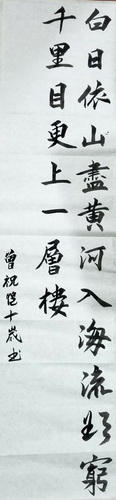 白日依山盡黃河入海流欲窮
千里目更上一層樓
曾祝愷十歲書